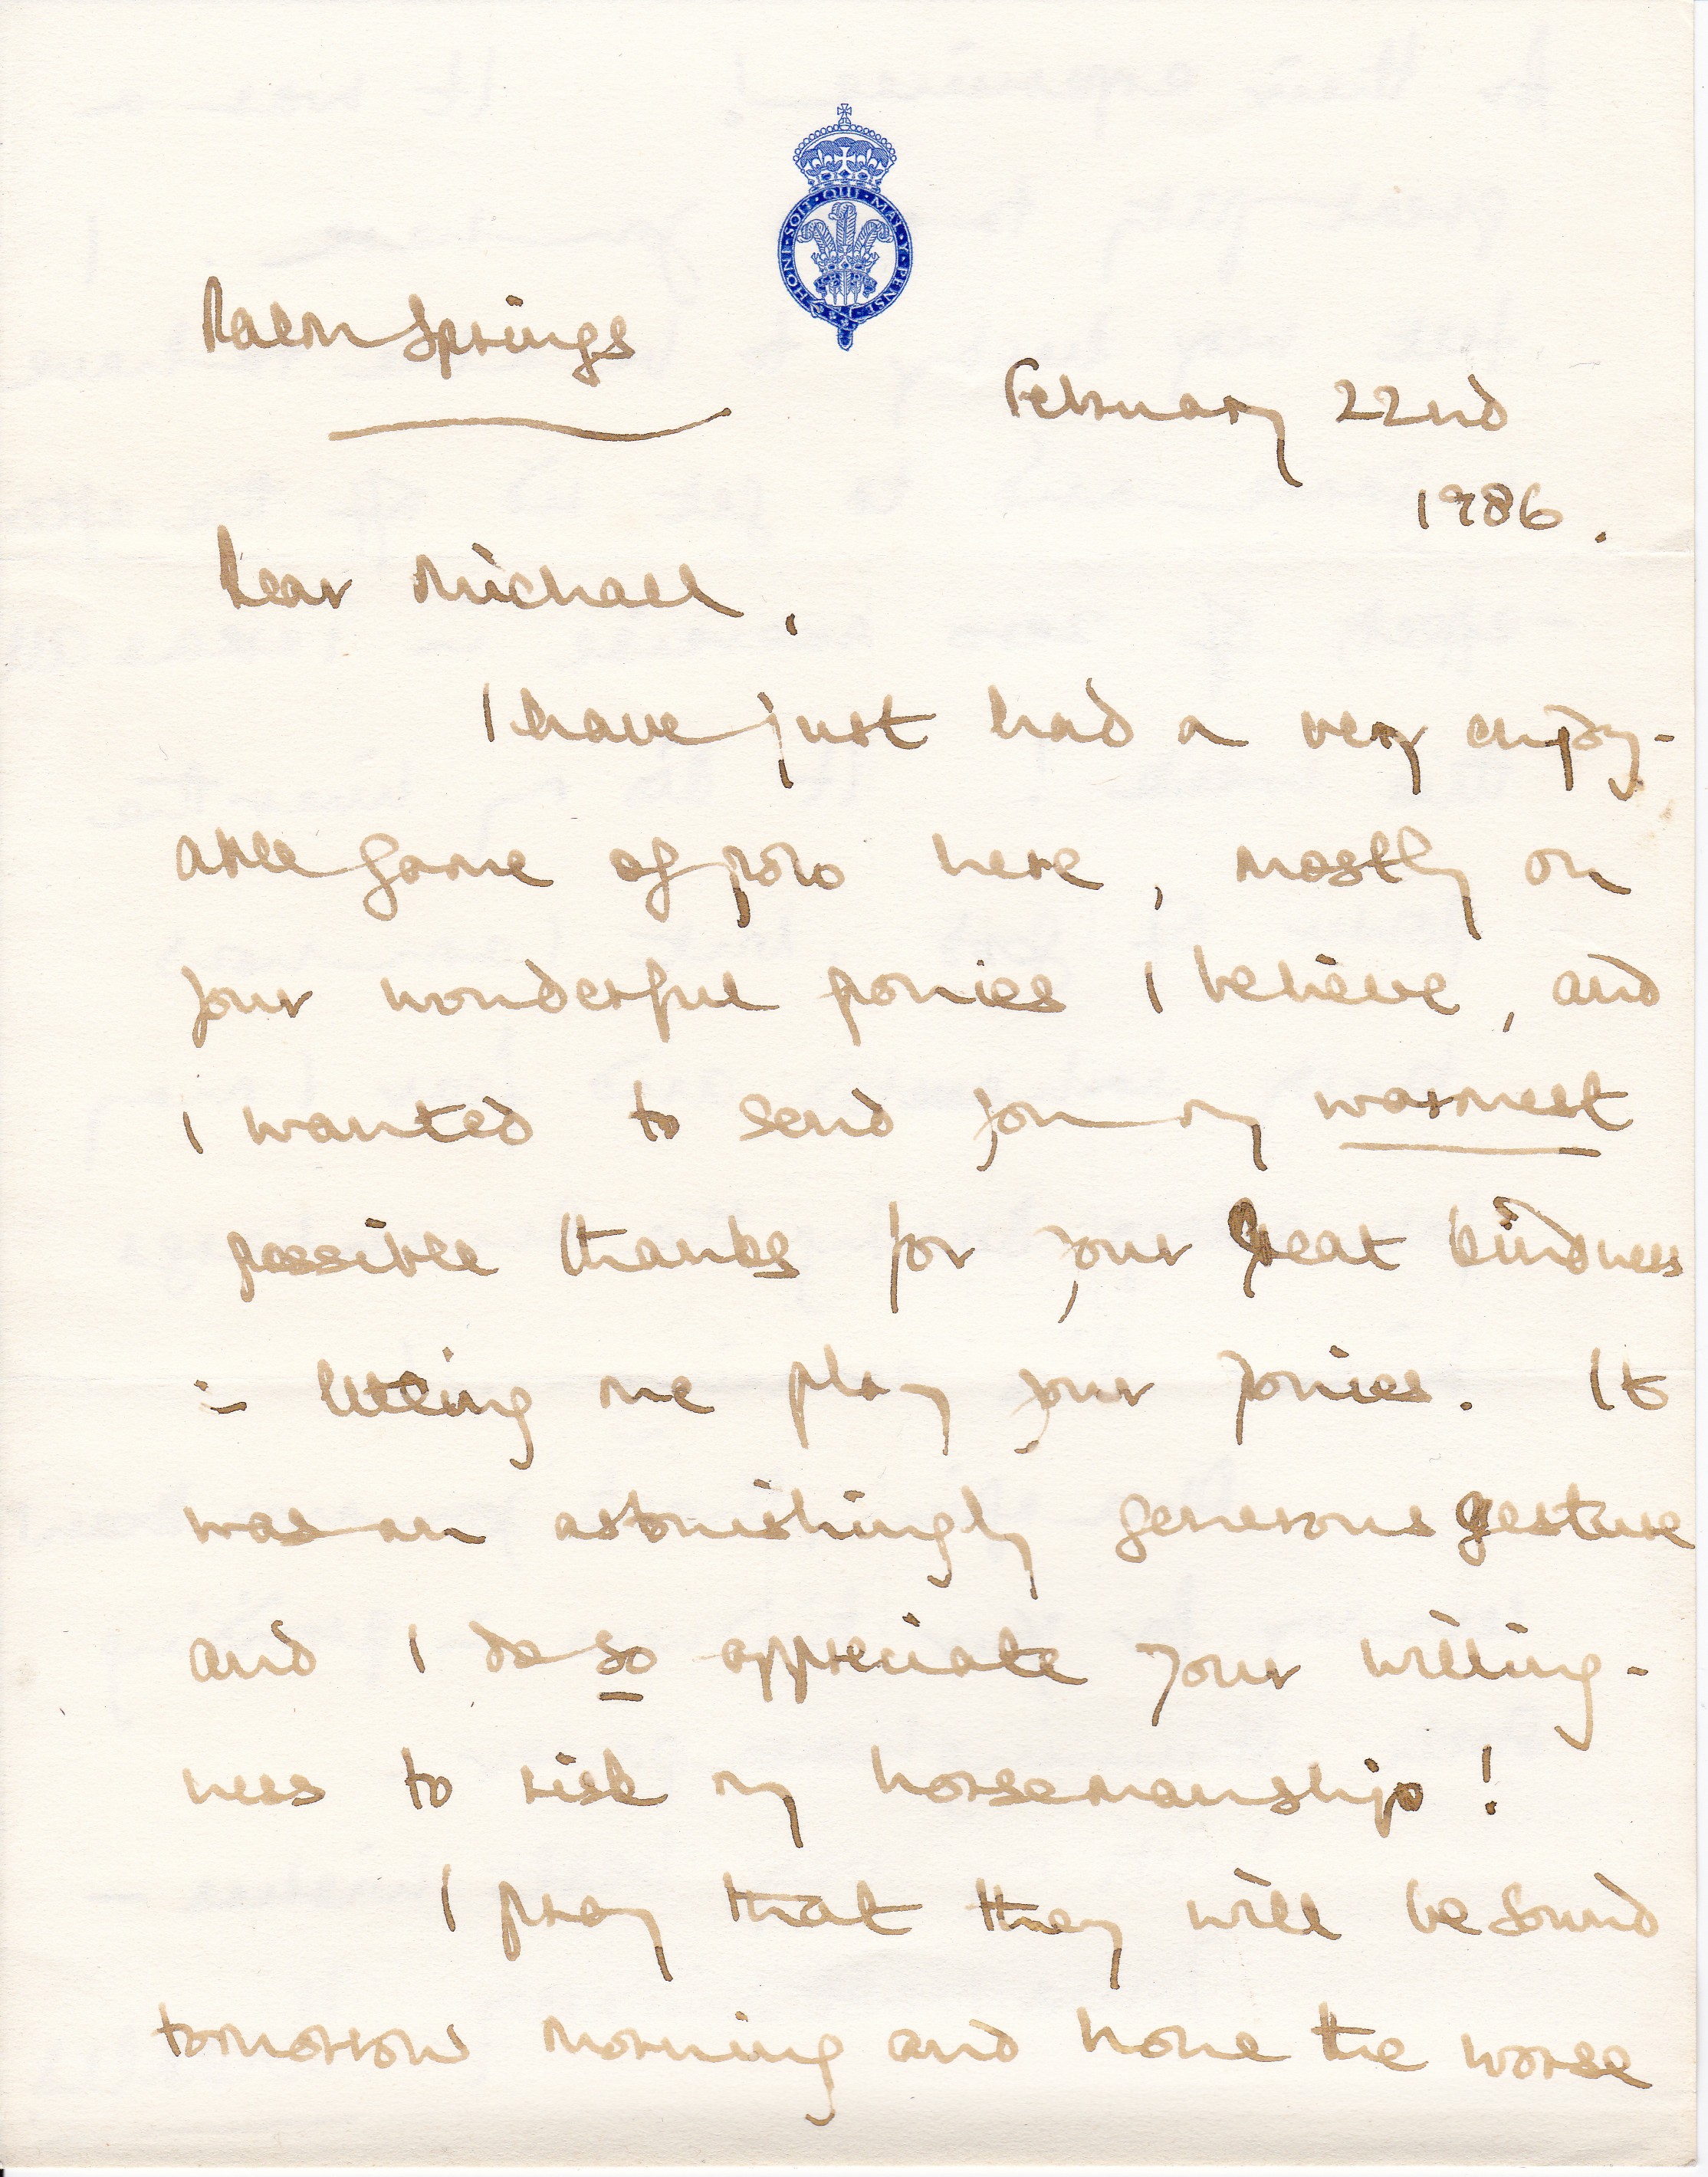 HONI · SOIT · QUI · MAL · Y · PENSE
Palm Springs
February 22nd
1986.
Dear Michael,
I have just had a very enjoy-
able game of polo here, mostly on
your wonderful ponies I believe, and
I wanted to send you my warmest
possible thanks for your great kindness
in letting me play your ponies. It
was an astonishingly generous gesture
and I do so appreciate your willing-
ness to risk my horsemanship!
I pray that they will be sound
tomorrow morning and none the worse